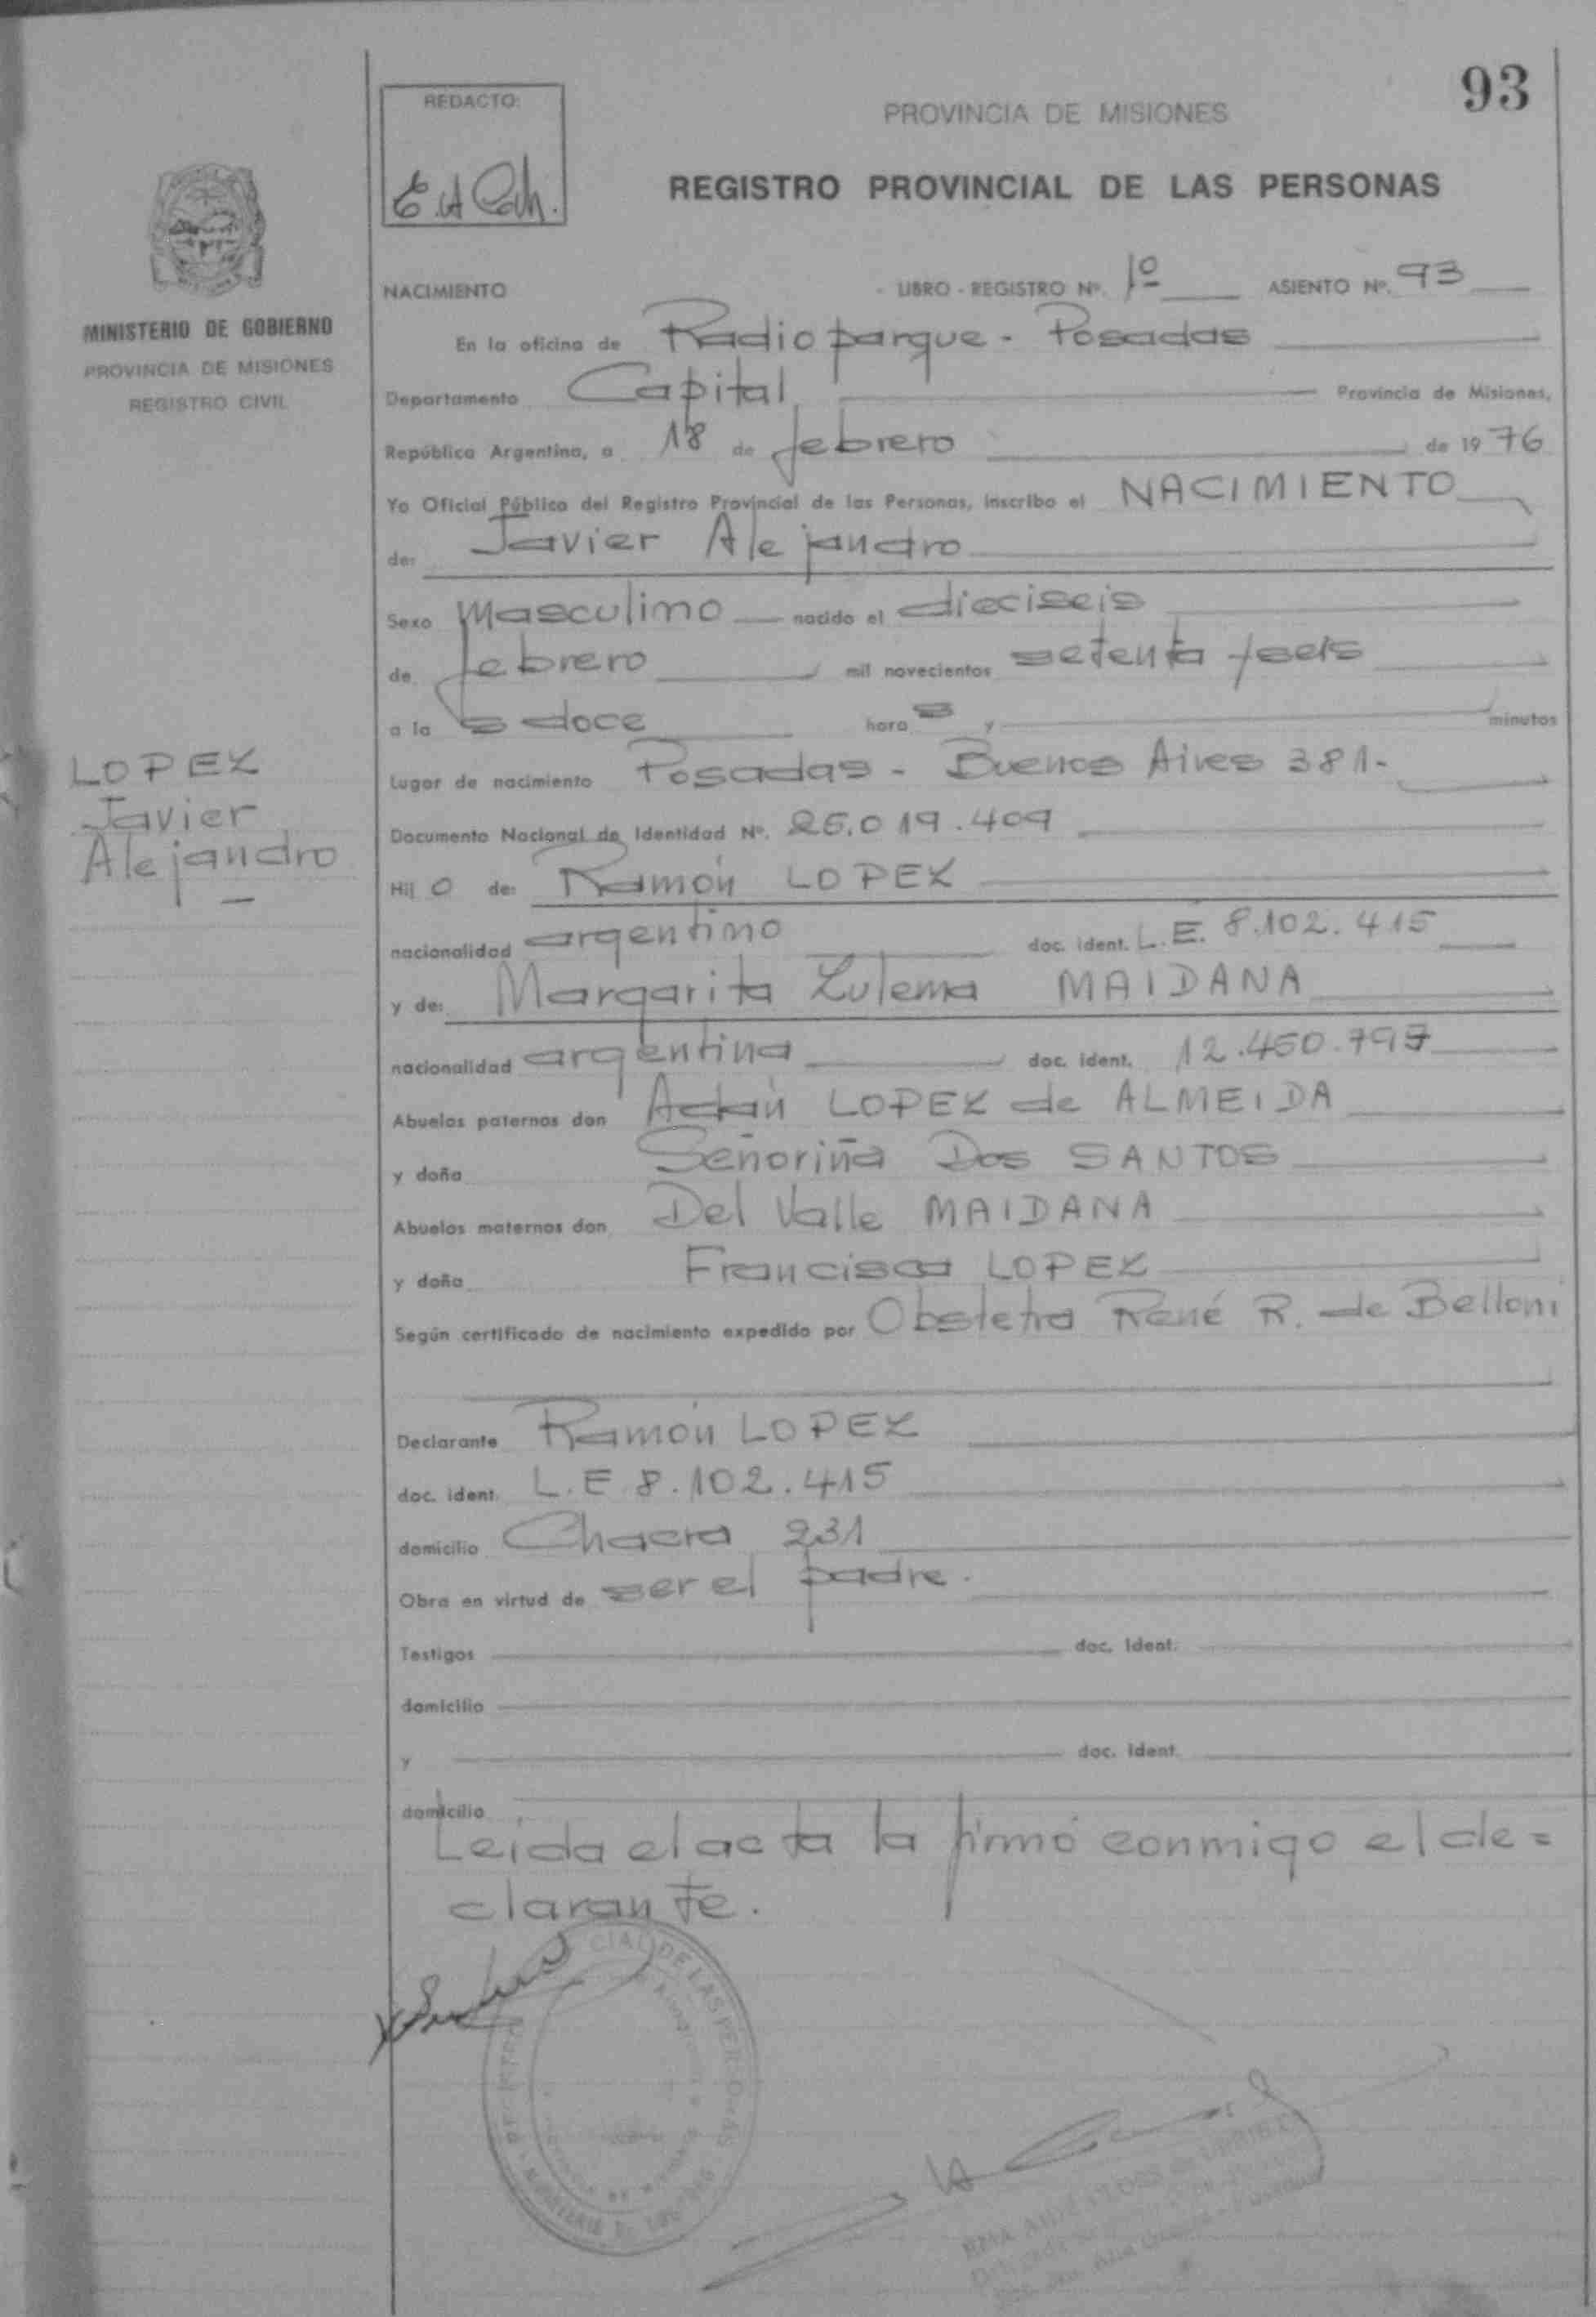 93
REDACTO:
PROVINCIA DE MISIONES
REGISTRO PROVINCIAL DE LAS PERSONAS
NACIMIENTO - LIBRO - REGISTRO Nº. 1º ASIENTO Nº. 93
MINISTERIO DE GOBIERNO
PROVINCIA DE MISIONES
REGISTRO CIVIL
En la oficina de Radioparque - Posadas
Departamento Capital Provincia de Misiones,
República Argentina, a 18 de febrero de 1976
Yo Oficial Público del Registro Provincial de las Personas, inscribo el NACIMIENTO
de: Javier Alejandro
Sexo Masculino nacido el dieciseis
de febrero mil novecientos setenta y seis
a las doce horas y minutos
LOPEZ
Javier
Alejandro
Lugar de nacimiento Posadas - Buenos Aires 381-
Documento Nacional de Identidad Nº. 25.019.409
Hijo de: Ramón LOPEZ
nacionalidad argentino doc. ident. L.E. 8.102.415
y de: Margarita Zulema MAIDANA
nacionalidad argentina doc. ident. 12.450.797
Abuelos paternos don Adán LOPEZ de ALMEIDA
y doña Señoriña Dos SANTOS
Abuelos maternos don Del Valle MAIDANA
y doña Francisca LOPEZ
Según certificado de nacimiento expedido por Obstetra René R. de Belloni
Declarante Ramón LOPEZ
doc. ident. L.E 8.102.415
domicilio Chacra 231
Obra en virtud de ser el padre.
Testigos doc. Ident.
domicilio
y doc. Ident.
domicilio
Leida el acta la firmó conmigo el de=
clarante.